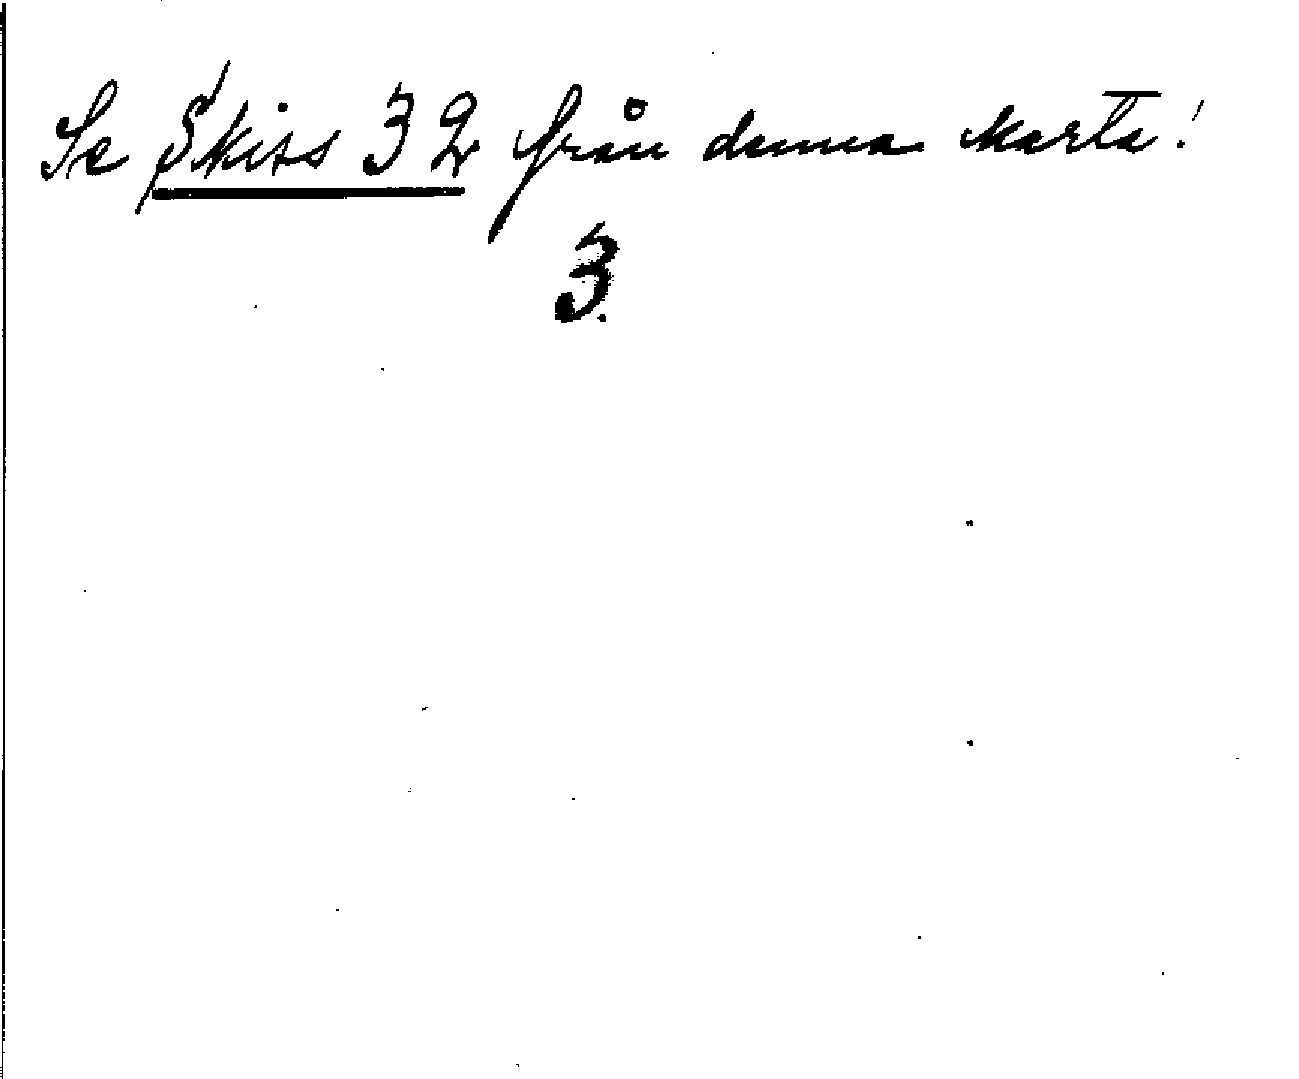 Se Skiss 32 från denna karta!
3.